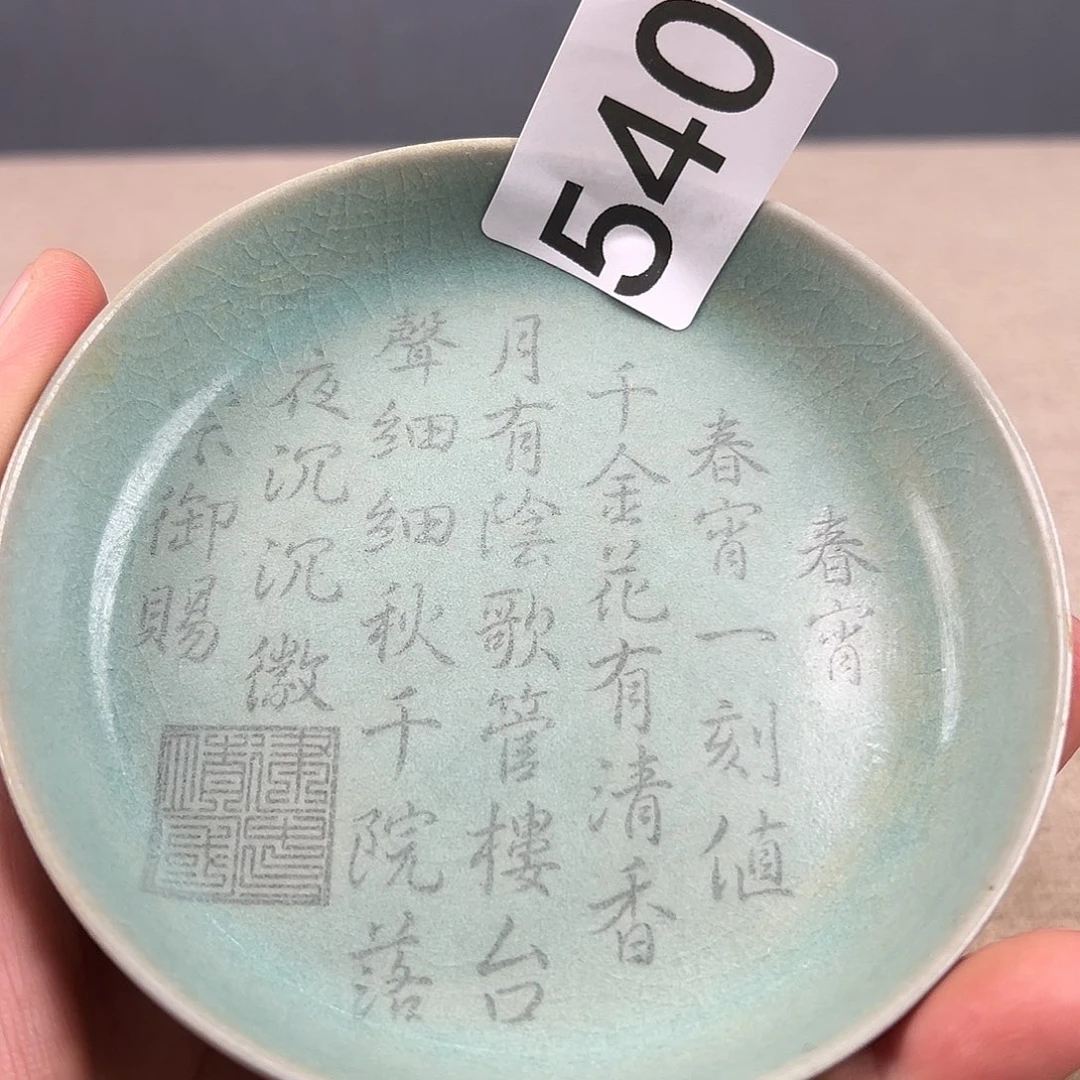 540
春宵
春宵一刻值
千金花有清香
月有陰歌管樓台
聲細細秋千院落
夜沉沉徽
宗御賜